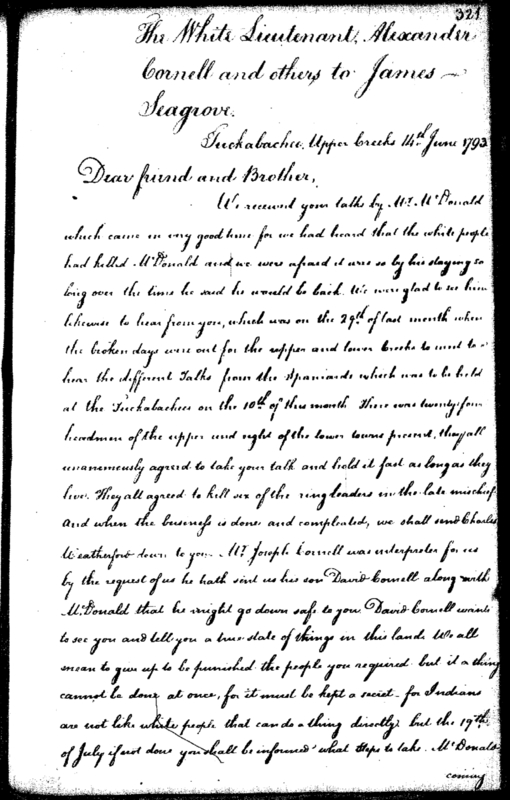 321
The White Lieutenant, Alexander
Cornell and others to James
Seagrove.
Tuckabachee, Upper Creeks 14th June 1793
Dear friend and Brother,
We received your talks by Mr. McDonald
which came in very good time for we had heard that the white people
had killed McDonald and we were afraid it was so by his staying so
long over the time he said he would be back. We were glad to see him
likewise to hear from you, which was on the 29th of last month when
the broken days were out for the upper and lower Creeks to meet to
hear the different Talks from the Spaniards which was to be held
at the Tuckabachees on the 10th of this month There was twenty four
headmen of the upper and eight of the lower towns present, they all
unanimously agreed to take your talk and hold it fast as long as they
live. They all agreed to kill six of the ring leaders in the late mischief
And when the business is done and compleated, we shall send Charles
Weatherford down to you. Mr. Joseph Cornell was interpreter for us
by the request of us he hath sent us his son David Cornell along with
McDonald that he might go down safe to you David Cornell wants
to see you and tell you a true state of things in this land. We all
mean to give up to be punished the people you required but it a thing
cannot be done at once, for it must be kept a secret - for Indians
are not like white people that can do a thing directly: but the 19th
of July if not done you shall be informed what steps to take. McDonalds
coming